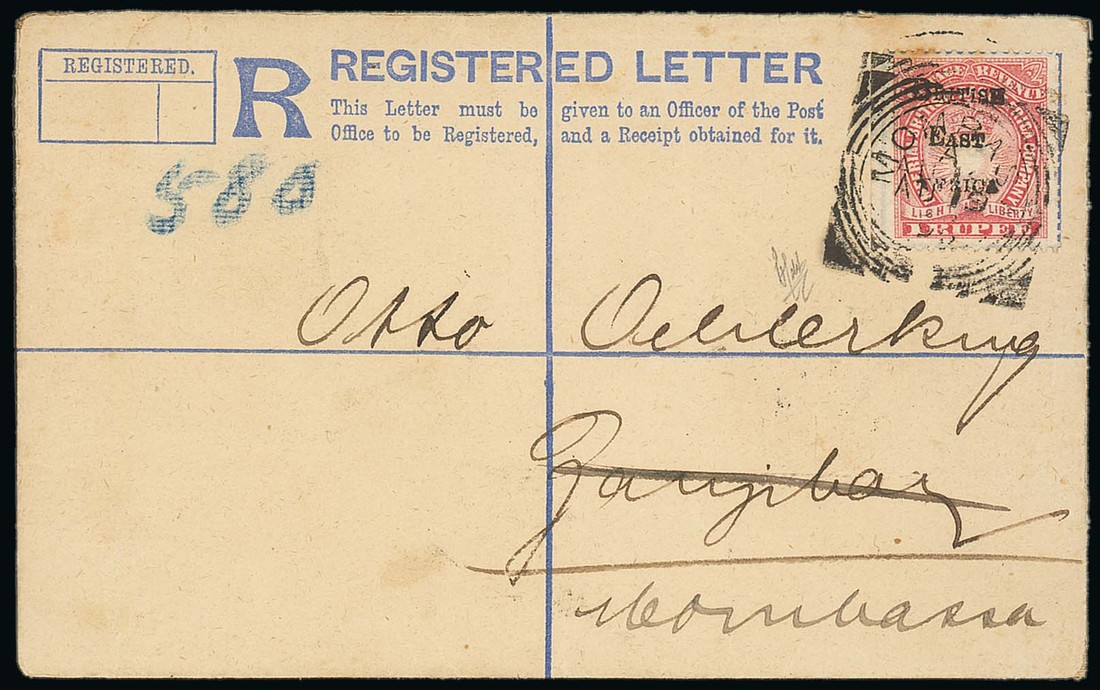 REGISTERED.
R
REGISTERED LETTER
This Letter must be given to an Officer of the Post
Office to be Registered, and a Receipt obtained for it.
580
BRITISH
EAST
AFRICA
LIGHT LIBERTY
1 RUPEE
MOMBASA
A
AU 19
Otto
Zanzibar
Mombassa